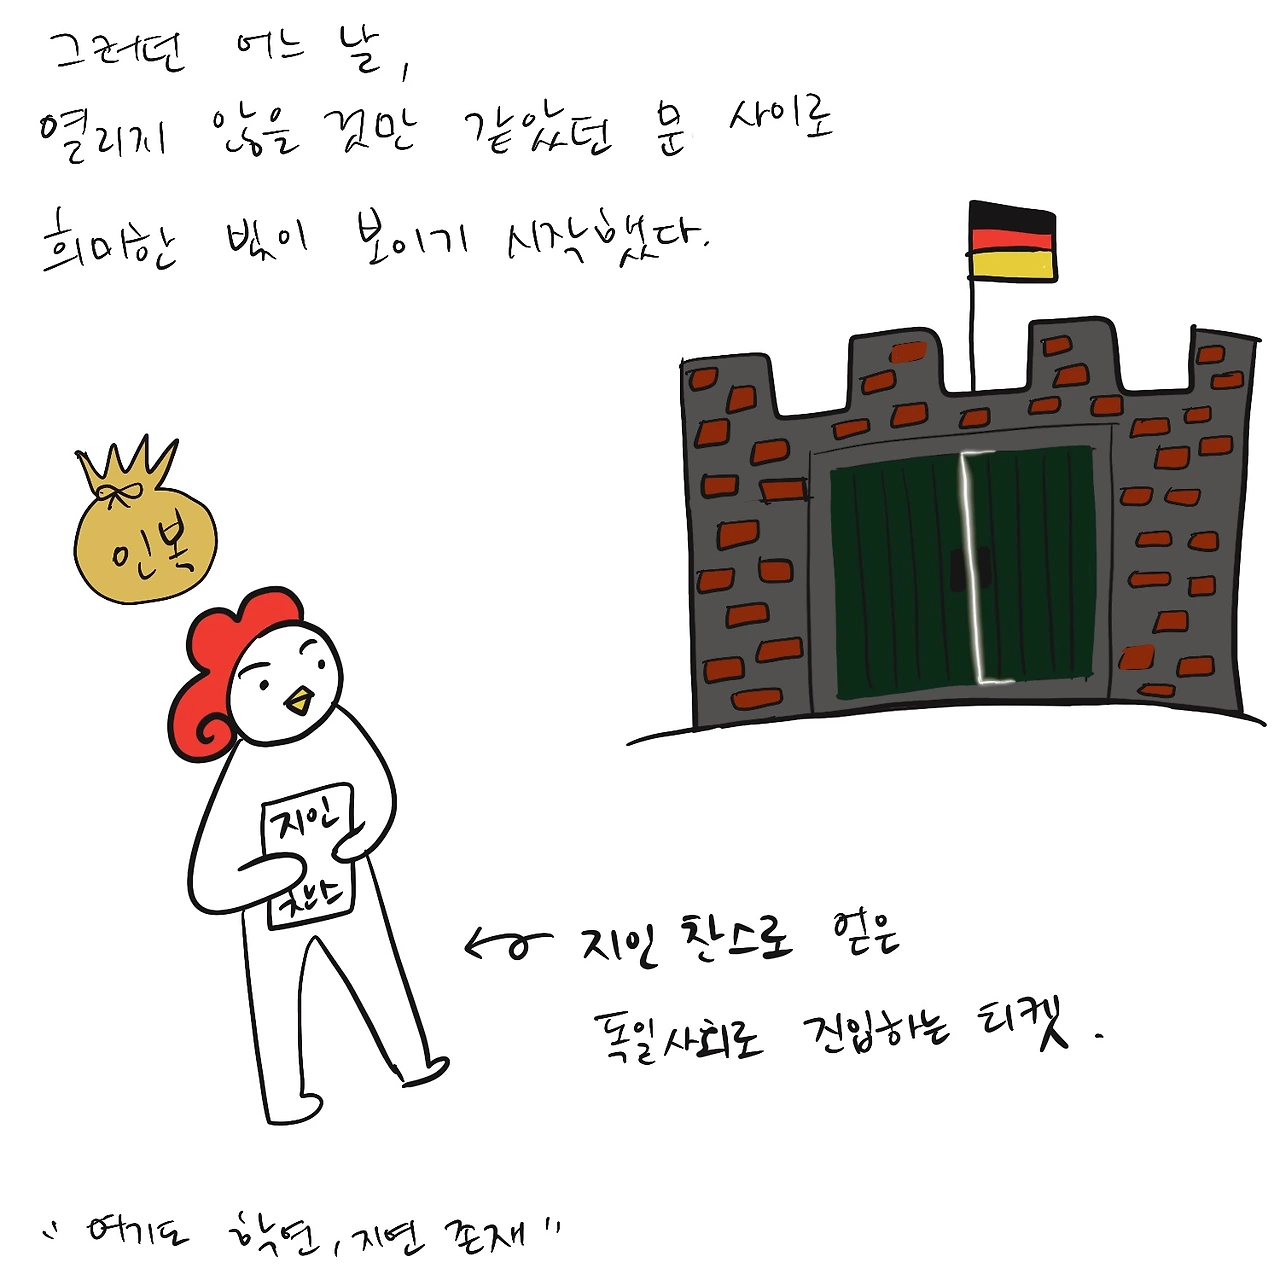 그러던 어느 날,
열리지 않을 것만 같았던 문 사이로
희미한 빛이 보이기 시작했다.
인복
지인
찬스
지인 찬스로 얻은
독일사회로 진입하는 티켓.
"여기도 학연, 지연 존재"